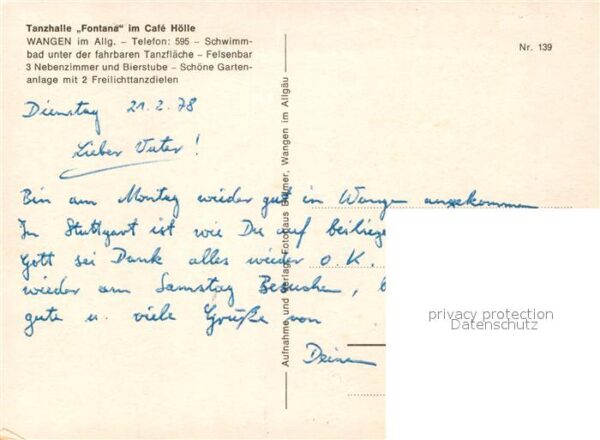 Tanzhalle „Fontana" im Café Hölle
WANGEN im Allg. – Telefon: 595 – Schwimm-
bad unter der fahrbaren Tanzfläche – Felsenbar
3 Nebenzimmer und Bierstube – Schöne Garten-
anlage mit 2 Freilichttanzdielen
Nr. 139
Dienstag 21.2.78
Lieber Vater!
Bin am Montag wieder gut in Wangen angekommen
In Stuttgart ist wie Du auf beiliege
Gott sei Dank alles wieder O.K.
wieder am Samstag Besuchen,
gute u. viele Grüße von
Deinem
Aufnahme und Verlag: Fotohaus Bulmer, Wangen im Allgäu
privacy protection
Datenschutz